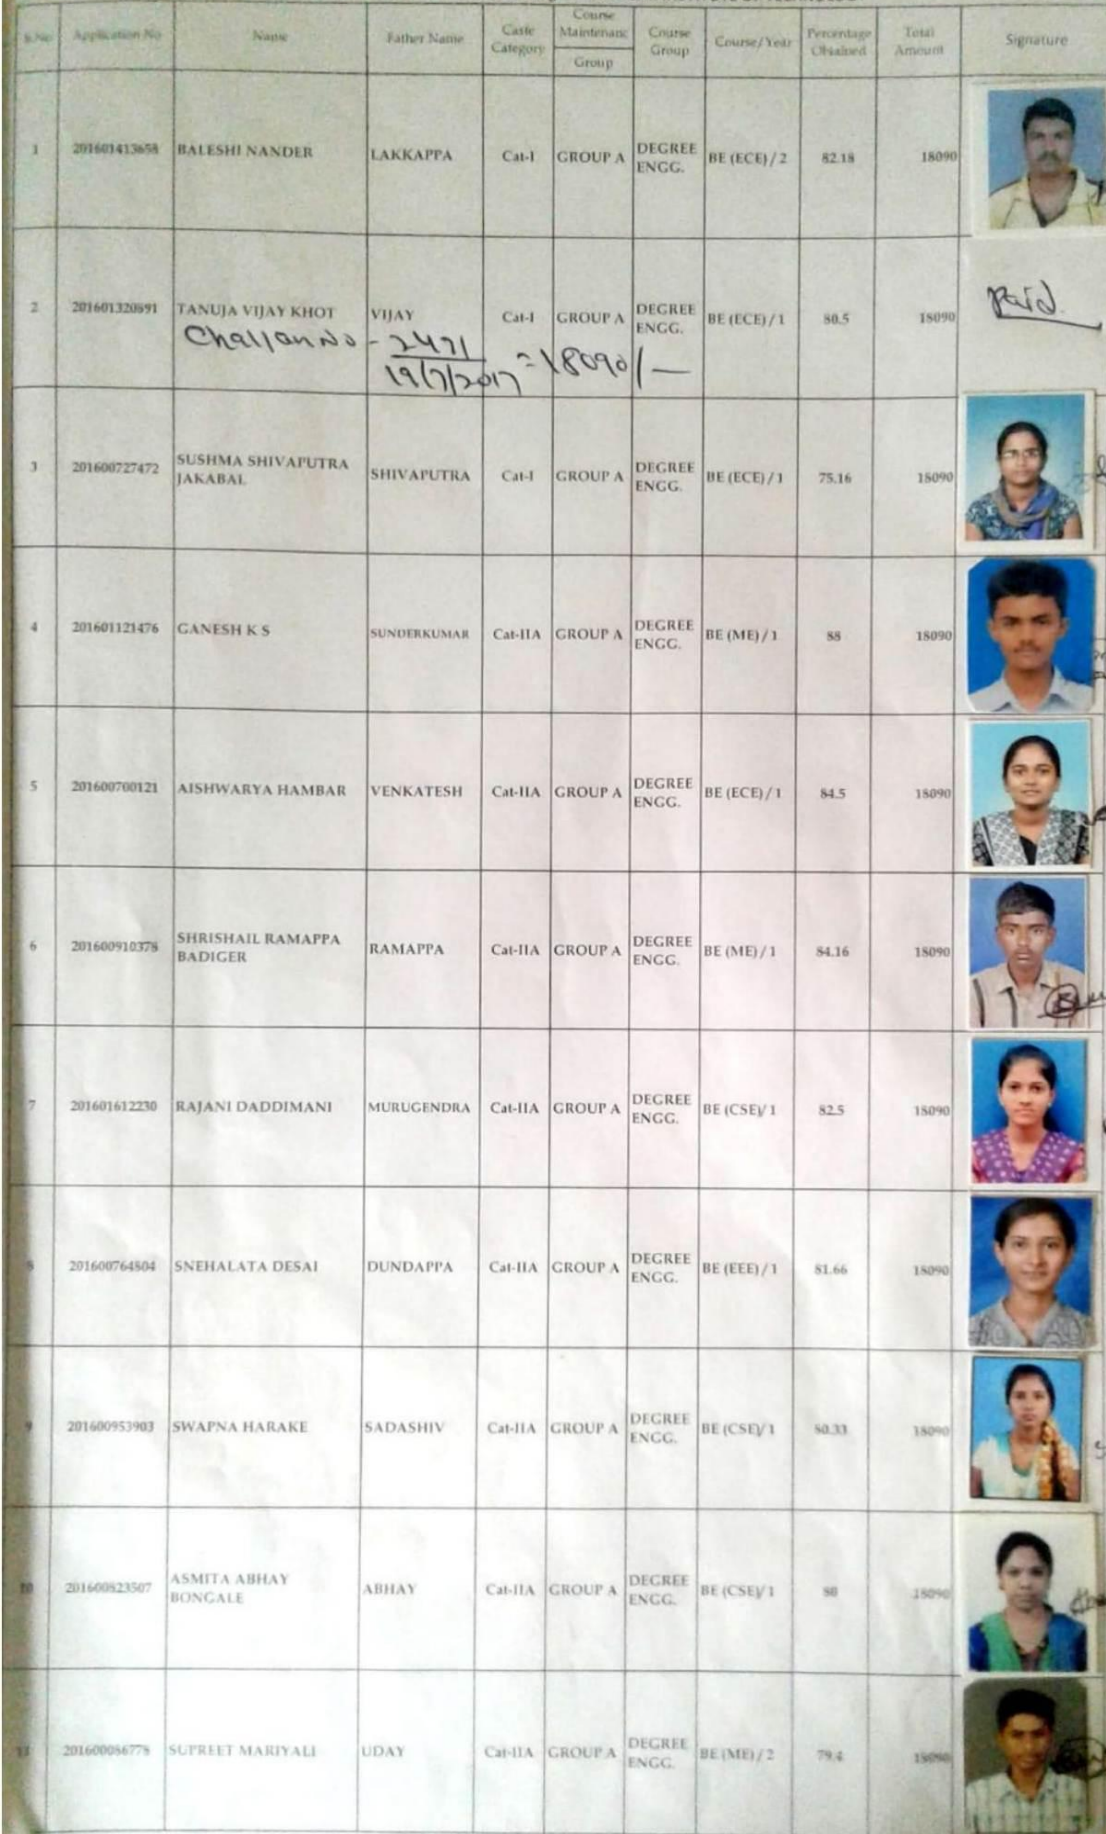 S.No Application No Name Father Name Caste Category Course Maintenanc Group Course Group Course/Year Percentage Obtained Total Amount Signature
1 201601413658 BALESHI NANDER LAKKAPPA Cat-I GROUP A DEGREE ENGG. BE (ECE) / 2 82.18 18090
2 201601320891 TANUJA VIJAY KHOT VIJAY Cat-I GROUP A DEGREE ENGG. BE (ECE) / 1 80.5 18090 Paid
Challan No - 2471
19/7/2017 = 18090/-
3 201600727472 SUSHMA SHIVAPUTRA JAKABAL SHIVAPUTRA Cat-I GROUP A DEGREE ENGG. BE (ECE) / 1 75.16 18090
4 201601121476 GANESH K S SUNDERKUMAR Cat-IIA GROUP A DEGREE ENGG. BE (ME) / 1 88 18090
5 201600700121 AISHWARYA HAMBAR VENKATESH Cat-IIA GROUP A DEGREE ENGG. BE (ECE) / 1 84.5 18090
6 201600910378 SHRISHAIL RAMAPPA BADIGER RAMAPPA Cat-IIA GROUP A DEGREE ENGG. BE (ME) / 1 84.16 18090
7 201601612230 RAJANI DADDIMANI MURUGENDRA Cat-IIA GROUP A DEGREE ENGG. BE (CSE)/ 1 82.5 18090
8 201600764804 SNEHALATA DESAI DUNDAPPA Cat-IIA GROUP A DEGREE ENGG. BE (EEE) / 1 81.66 18090
9 201600953903 SWAPNA HARAKE SADASHIV Cat-IIA GROUP A DEGREE ENGG. BE (CSE)/ 1 80.33 18090
10 201600823507 ASMITA ABHAY BONGALE ABHAY Cat-IIA GROUP A DEGREE ENGG. BE (CSE)/ 1 80 18090
11 201600086778 SUPREET MARIYALI UDAY Cat-IIA GROUP A DEGREE ENGG. BE (ME) / 2 79.4 18090